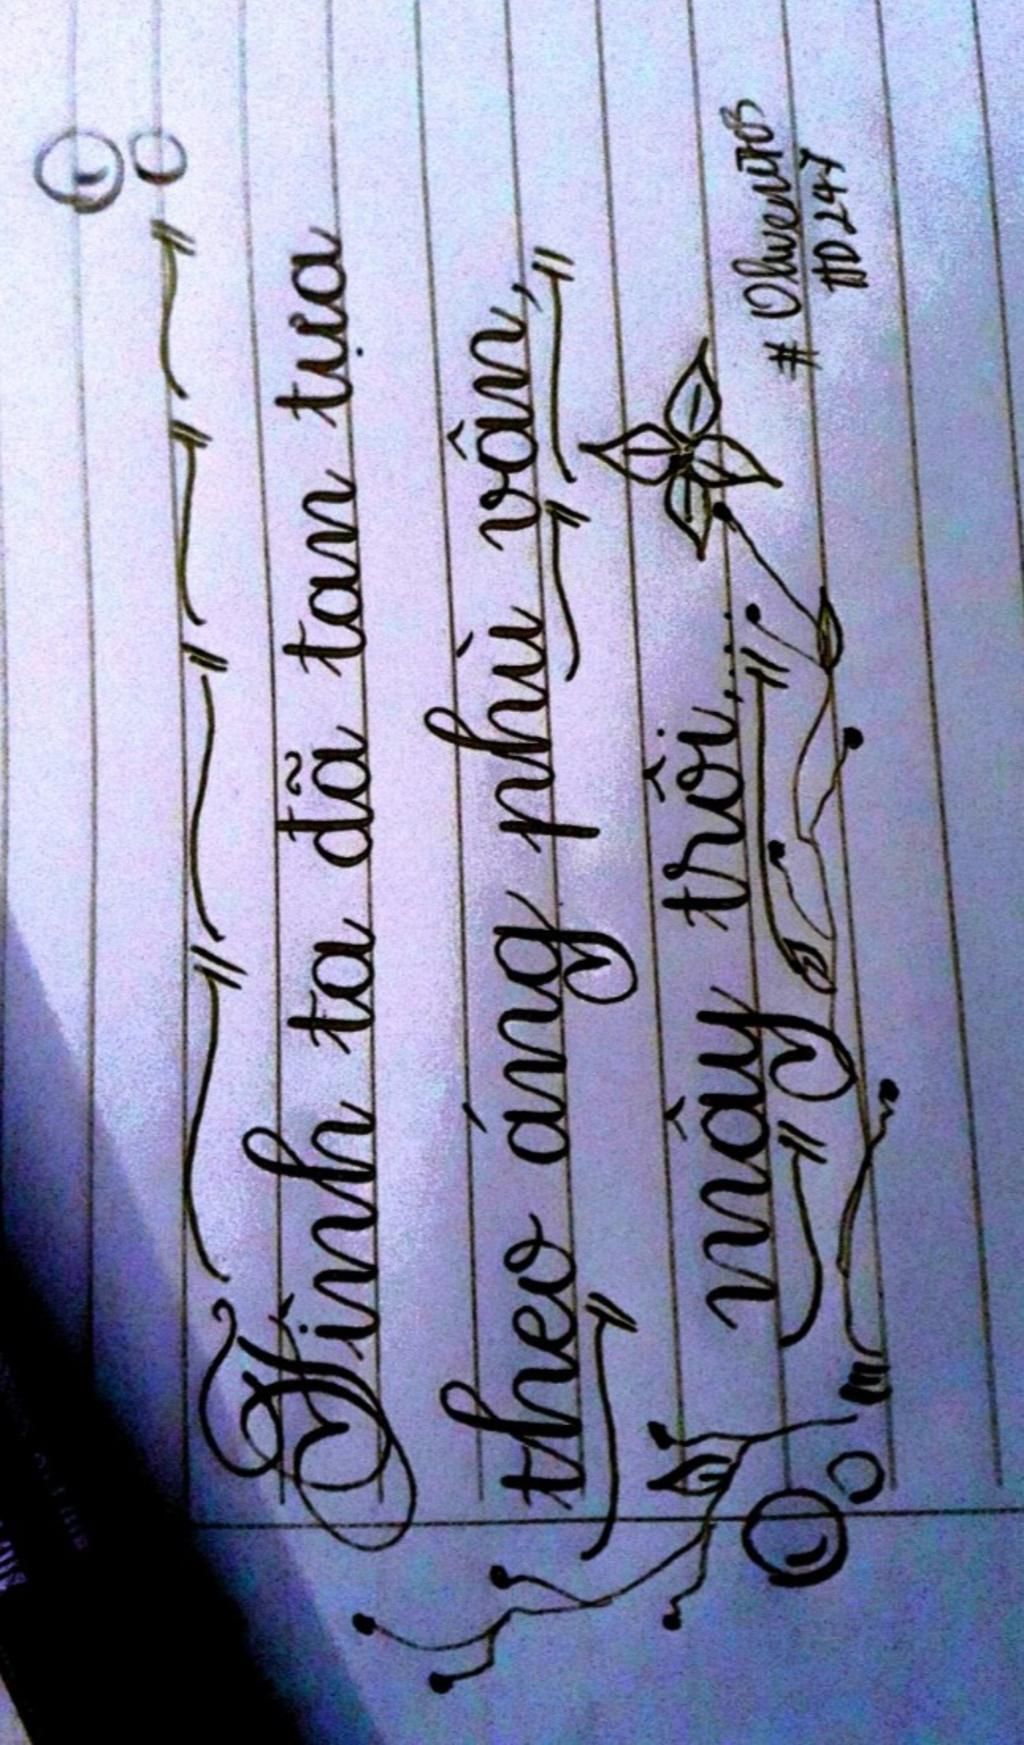 Tình ta đã tan tựa
theo áng phù vân,
mây trôi....
# HD247